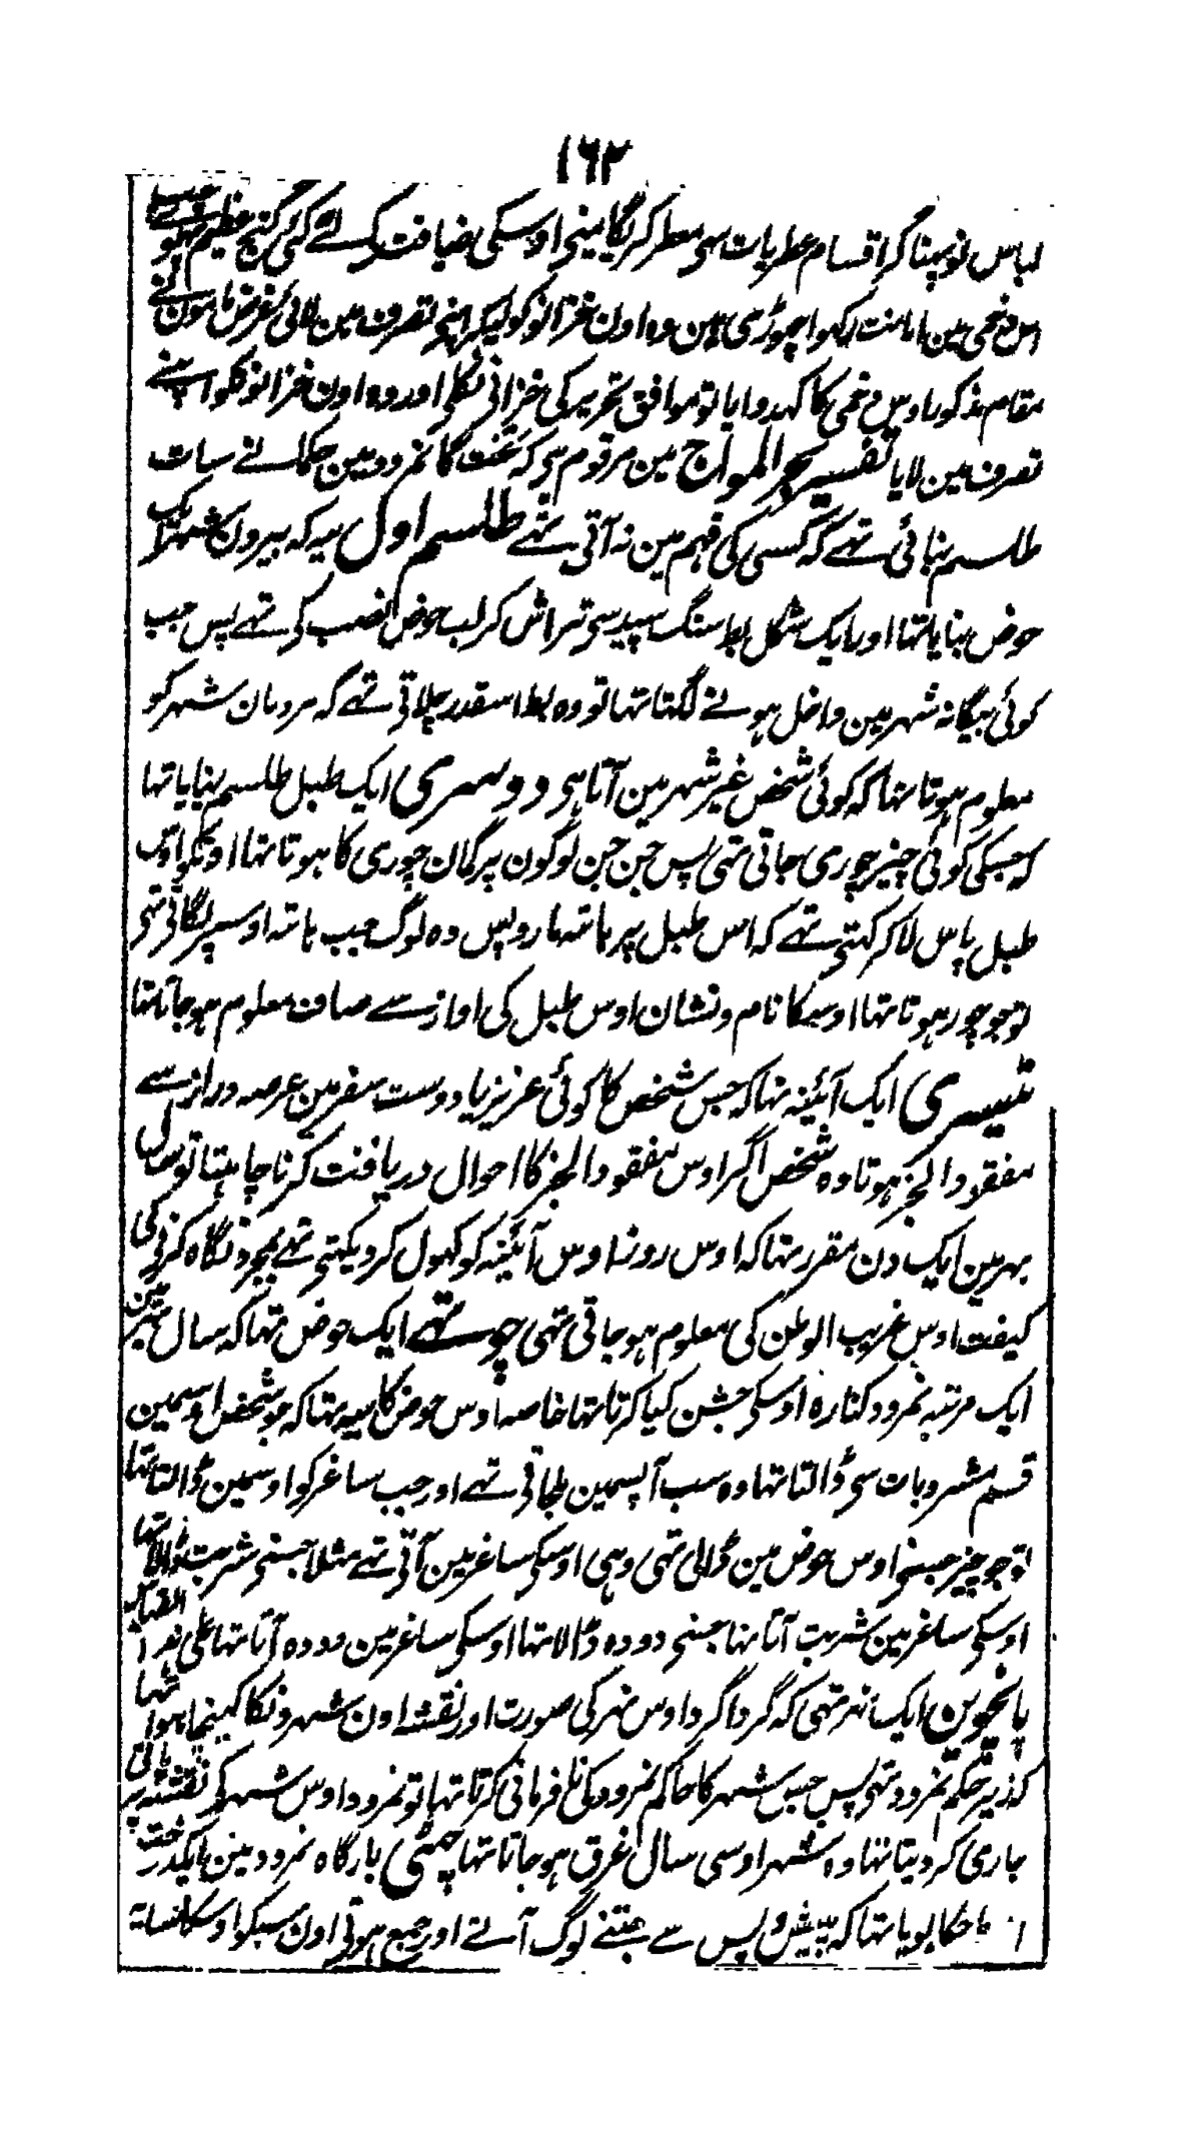 ١٦٢
لباس نو پہنا کر اقسام عطریات سی معطر کریگا مینی اوسکی ضیافت کے لئے کئی گنج عظیم
اس دخمی مین امانت رکہوا چہوڑی ہین وہ اون خزانونکو لیکر اپنی تصرف مین لائی غرض مامون نے
مقام مذکور اوس دخمی کا کہدوایا تو موافق تحریر کی خزانی نکلی اور وہ اون خزانونکو اپنے
تصرف مین لایا تفسیر بحر المواج مین مرقوم ہی کہ تخت گاہ نمرود مین حکما نے سات
طلسم بنائی تہے کہ کسی کی فہم مین نہ آتی تہے طلسم اول یہ کہ بیرون شہر ایک
حوض بنایا تہا اور ایک شکل بط سنگ سپید سی تراش کر لب حوض نصب کی تہے پس جب
کوئی بیگانہ شہر مین داخل ہونے لگتا تہا تو وہ بط اسقدر چلاتی تہے کہ مردمان شہر کو
معلوم ہوتا تہا کہ کوئی شخص غیر شہر مین آتا ہی دوسری ایک طبل طلسم بنایا تہا
کہ جسکی کوئی چیز چوری جاتی تہی پس جن جن لوگون پر گمان چوری کا ہوتا تہا اونکو اوس
طبل پاس لا کر کہتی تہے کہ اس طبل پر ہاتہ مارو پس وہ لوگ جب ہاتہ اوسپر لگاتی تہی
تو جو چور ہوتا تہا اوسکا نام و نشان اوس طبل کی اواز سے صاف معلوم ہو جاتا تہا
تیسری ایک آئینہ تہا کہ جس شخص کا کوئی عزیز یا دوست سفر مین عرصہ دراز سے
مفقود الخبر ہوتا وہ شخص اگر اوس مفقود الخبر کا احوال دریافت کرنا چاہتا تو سال
بہر مین ایک دن مقرر تہا کہ اوس روز اوس آئینہ کو کہول کر دیکہتی تہے بمجرد نگاہ کرنی کی
کیفت اوس غریب الوطن کی معلوم ہو جاتی تہی چوتہے ایک حوض تہا کہ سال بہر مین
ایک مرتبہ نمرود کنارہ اوسکی جشن کیا کرتا تہا خاصہ اوس حوض کا یہ تہا کہ جو شخص اوسمین
قسم مشروبات سی ڈالتا تہا وہ سب آپسمین ملجاتی تہے اور جب ساغر کو اوسمین ڈالتا تہا
تو جو چیز جسنی اوس حوض مین ڈالی تہی وہی اوسکی ساغر مین آتی تہے مثلا جسنی شربت ڈالا تہا
اوسکی ساغر مین شربت آتا تہا جسنی دودہ ڈالا تہا اوسکی ساغر مین دودہ آتا تہا علی ہذا القیاس
پانچوین ایک نہر تہی کہ گرداگرد اوس نہر کی صورت اور نقشہ اون شہرونکا کہینچا ہوا تہا
کہ زیر حکم نمرود تہی پس جس شہر کا حاکم نمرود کی نافرمانی کرتا تہا تو نمرود اوس شہر کی نقشہ پر پانی
جاری کر دیتا تہا وہ شہر اوسی سال غرق ہو جاتا تہا چہٹی بارگاہ نمرود مین ایک درخت
بویا تہا کہ پیش و پس سے جتنے لوگ آتے اور جمع ہوتی اون سبکو اوسکا سایہ